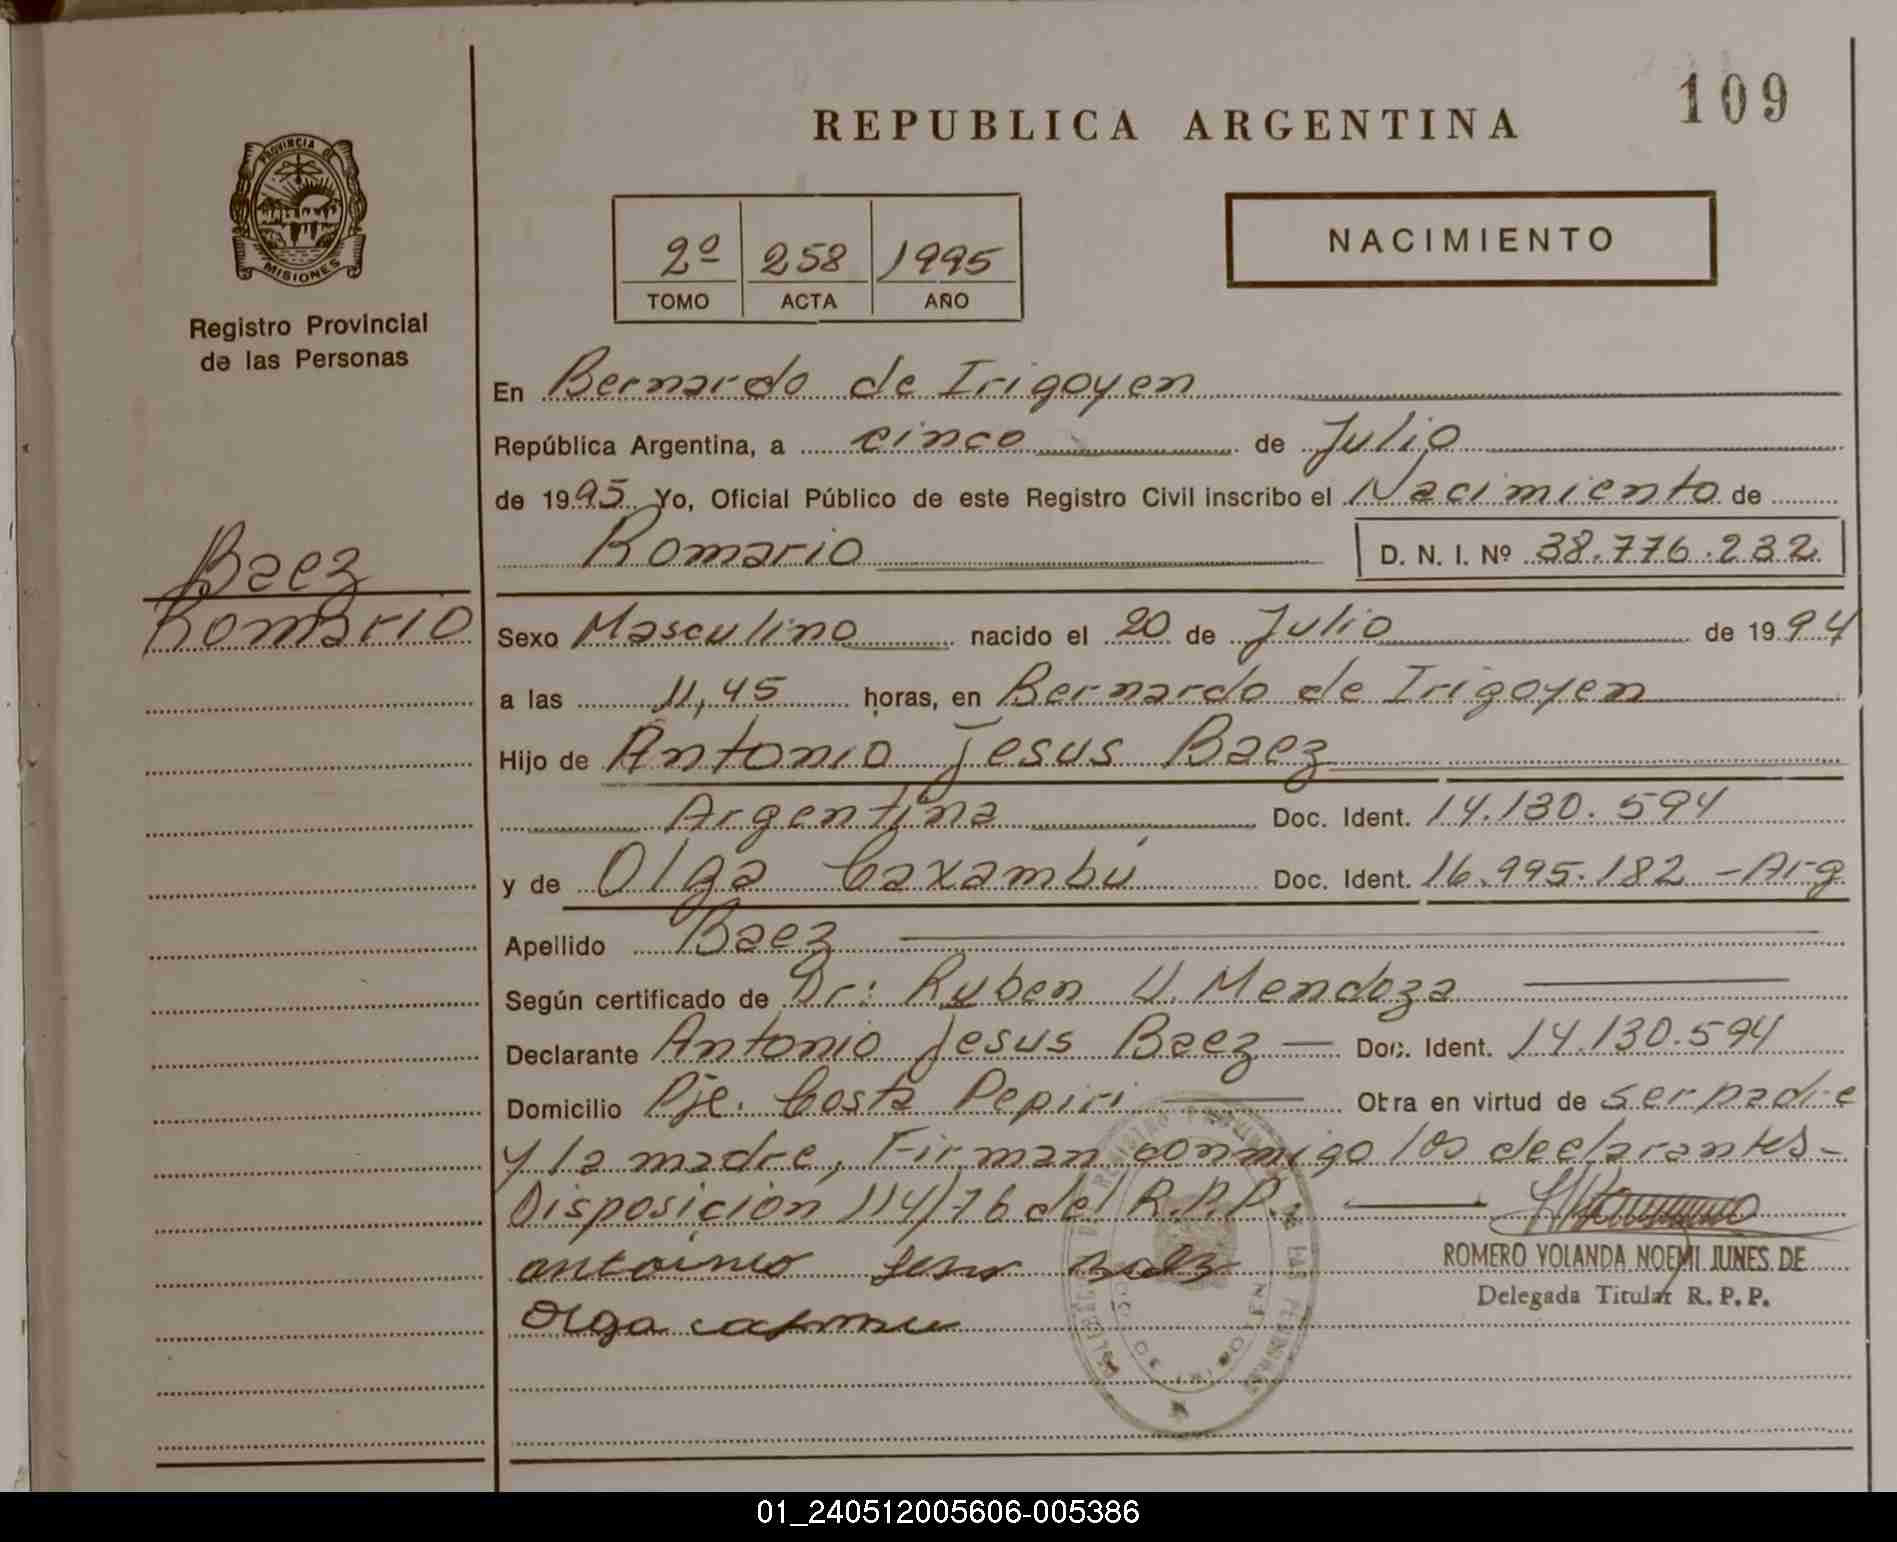 109
REPUBLICA ARGENTINA
PROVINCIA DE
MISIONES
Registro Provincial
de las Personas
2º 258 1995
TOMO ACTA AÑO
NACIMIENTO
En Bernardo de Irigoyen
República Argentina, a cinco de Julio
de 1995 Yo, Oficial Público de este Registro Civil inscribo el Nacimiento de
Romario D. N. I. Nº 38.776.232
Baez
Romario
Sexo Masculino nacido el 20 de Julio de 1994
a las 11,45 horas, en Bernardo de Irigoyen
Hijo de Antonio Jesus Baez
Argentina Doc. Ident. 14.130.594
y de Olga Caxambú Doc. Ident. 16.995.182 - Arg
Apellido Baez
Según certificado de Dr: Ruben U. Mendoza
Declarante Antonio Jesus Baez — Doc. Ident. 14.130.594
Domicilio Pje. Costa Pepiri Obra en virtud de ser padre
y la madre, Firman conmigo los declarantes-
Disposición 114/76 del R.P.P.
antoinio Jesus Baez
ROMERO YOLANDA NOEMI JUNES DE
Delegada Titular R. P. P.
Olga
01_240512005606-005386